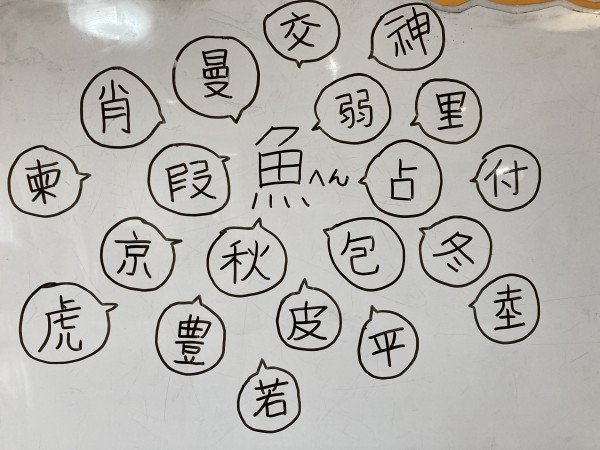 交
神
曼
肖
弱
里
柬
叚
魚へん
占
付
京
秋
包
冬
虎
豊
皮
平
若